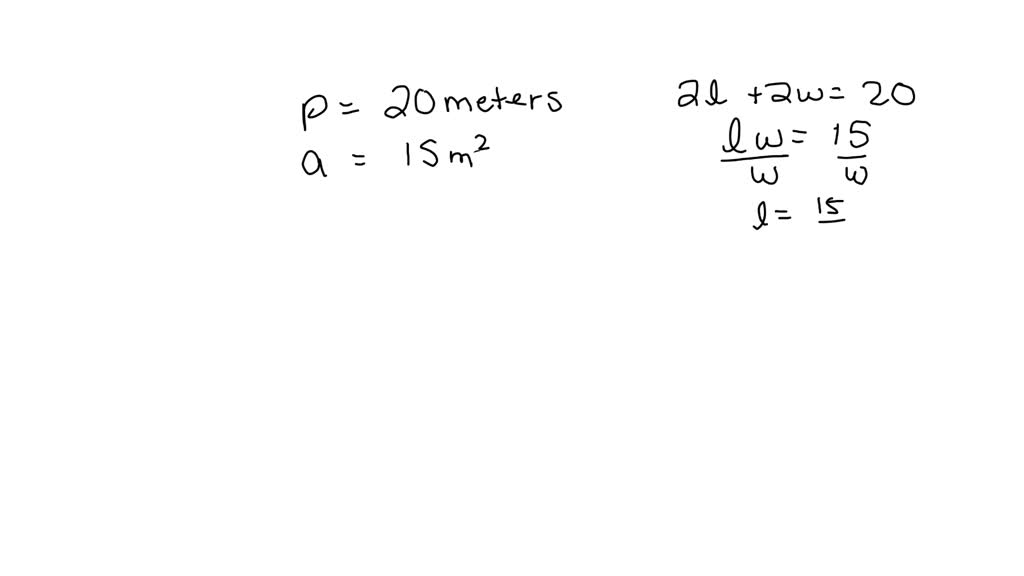 p = 20 meters
a = 15 m²
2l + 2w = 20
lw = 15
w w
l = 15